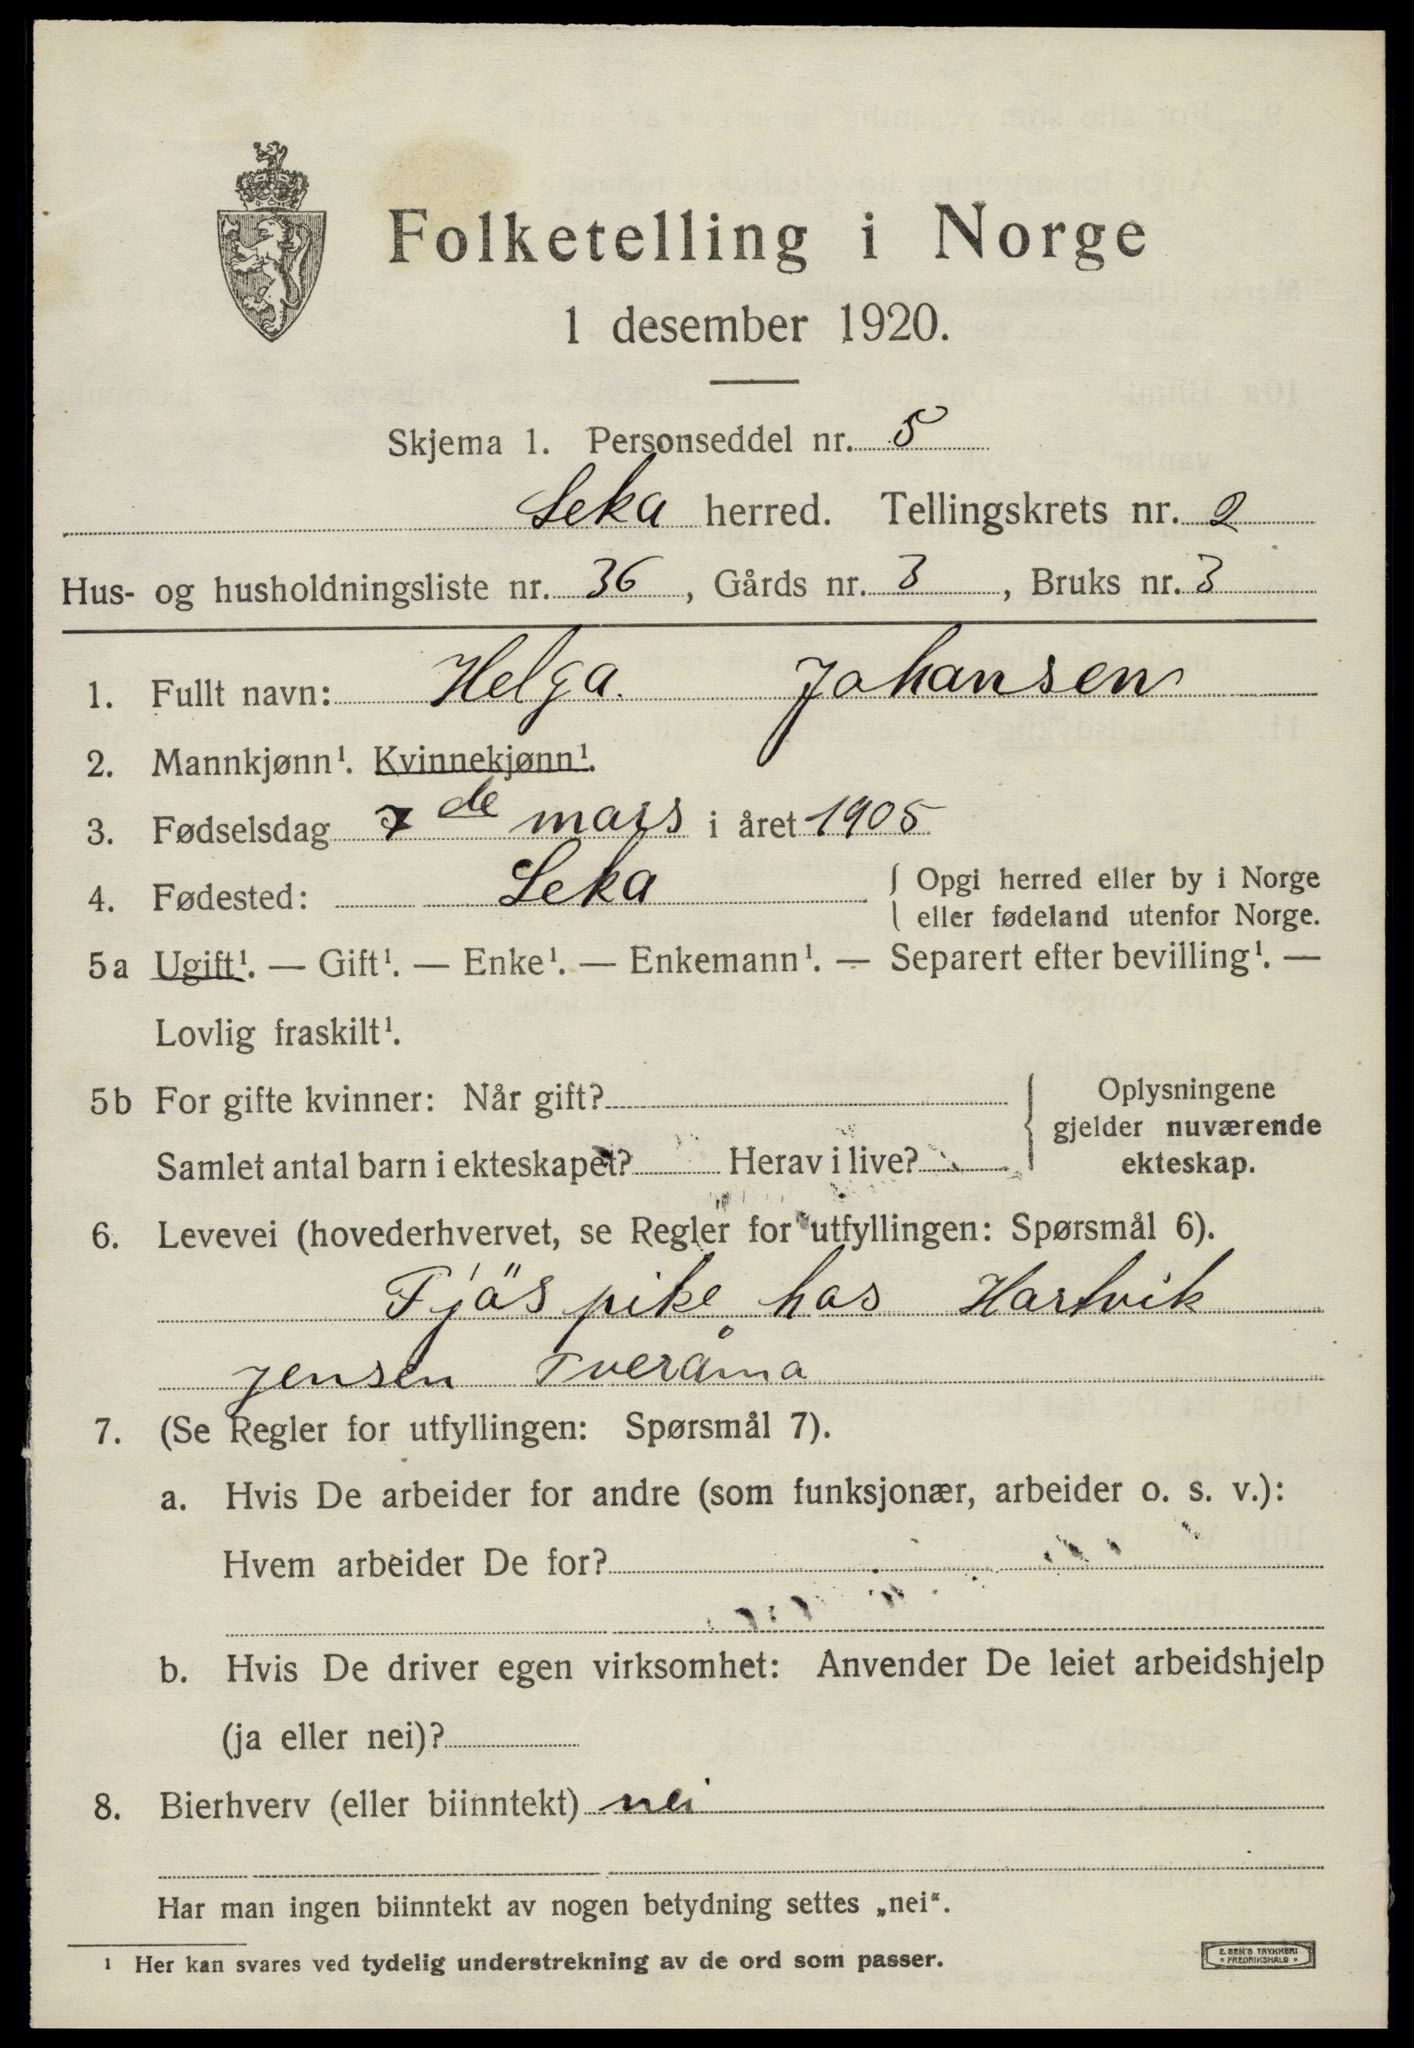 Folketelling i Norge
1 desember 1920.
Skjema 1. Personseddel nr. 5
Leka herred. Tellingskrets nr. 2
Hus- og husholdningsliste nr. 36, Gårds nr. 3, Bruks nr. 3
1. Fullt navn: Helga Johansen
2. Mannkjønn¹. Kvinnekjønn¹.
3. Fødselsdag 7de mars i året 1905
4. Fødested: Leka { Opgi herred eller by i Norge
eller fødeland utenfor Norge.
5a Ugift¹. — Gift¹. — Enke¹. — Enkemann¹. — Separert efter bevilling¹. —
Lovlig fraskilt¹.
5b For gifte kvinner: Når gift? { Oplysningene
gjelder nuværende
Samlet antal barn i ekteskapet? Herav i live? ekteskap.
6. Levevei (hovederhvervet, se Regler for utfyllingen: Spørsmål 6).
Fjöspike hos Hartvik
Jensen Tveråma
7. (Se Regler for utfyllingen: Spørsmål 7).
a. Hvis De arbeider for andre (som funksjonær, arbeider o. s. v.):
Hvem arbeider De for?
b. Hvis De driver egen virksomhet: Anvender De leiet arbeidshjelp
(ja eller nei)?
8. Bierhverv (eller biinntekt) nei
Har man ingen biinntekt av nogen betydning settes „nei“.
¹ Her kan svares ved tydelig understrekning av de ord som passer.
E. SEM'S TRYKKERI
• FREDRIKSHALD •